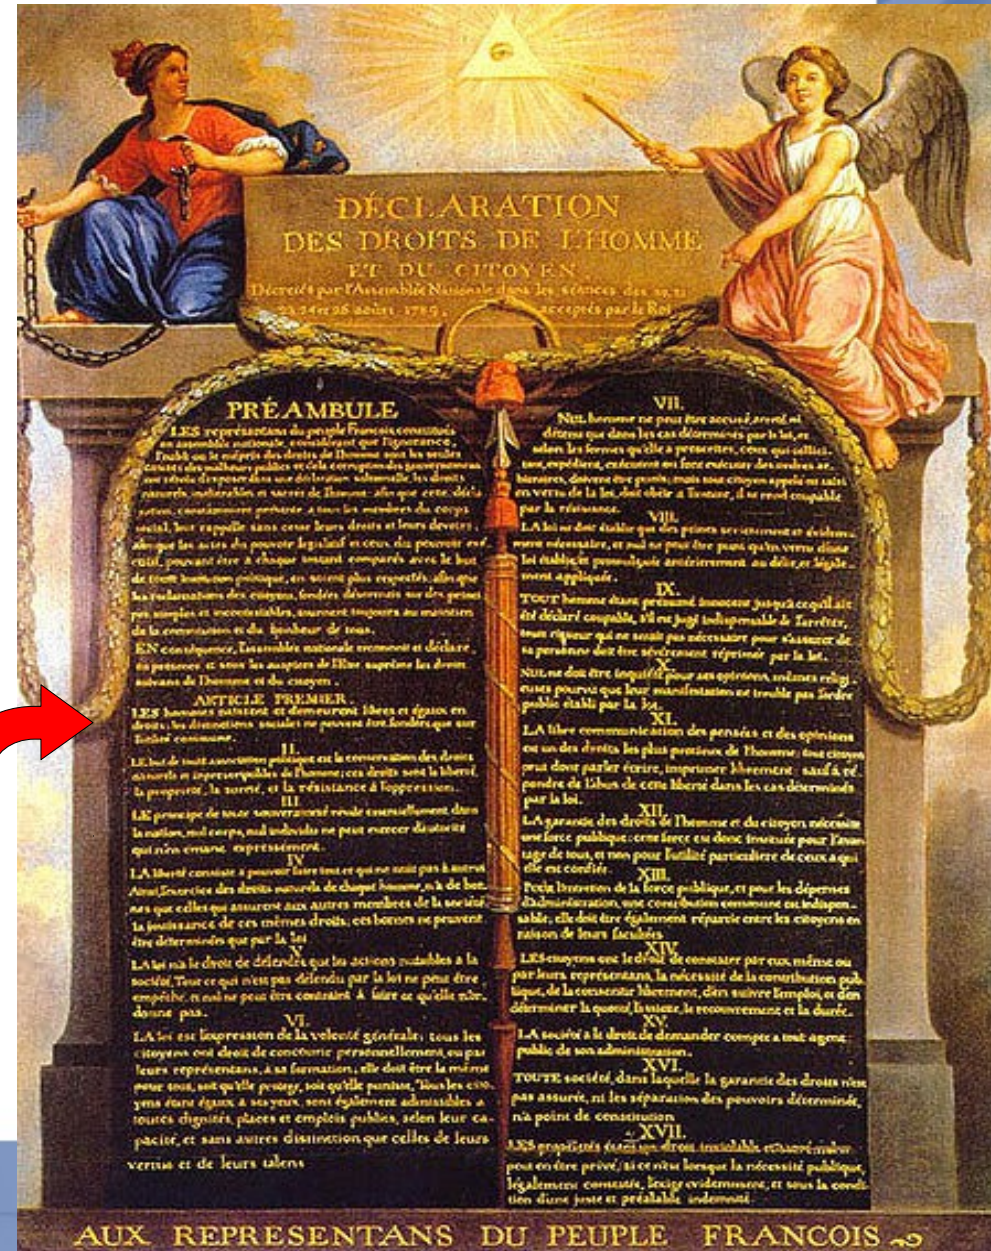 DÉCLARATION
DES DROITS DE L'HOMME
ET DU CITOYEN.
Décretés par l'Assemblée Nationale dans les séances des 20, 21
23, 24 et 26 août 1789, acceptés par le Roi
PRÉAMBULE
LES représentans du peuple François constitués
en assemblée nationale, considérant que l'ignorance,
l'oubli ou le mépris des droits de l'homme sont les seules
causes des malheurs publics et de la corruption des gouvernemens
ont résolu d'exposer dans une déclaration solemnelle, les droits
naturels, inaliénables et sacrés de l'homme: afin que cette décla
ration, constamment présente à tous les membres du corps
social, leur rappelle sans cesse leurs droits et leurs devoirs,
afin que les actes du pouvoir législatif et ceux du pouvoir exé
cutif, pouvant être à chaque instant comparés avec le but
de toute institution politique, en soient plus respectés, afin que
les réclamations des citoyens, fondées désormais sur des principes
simples et incontestables, tournent toujours au maintien
de la constitution et du bonheur de tous.
EN conséquence, l'assemblée nationale reconnoit et déclare
en présence et sous les auspices de l'Etre suprême les droits
suivans de l'homme et du citoyen.
ARTICLE PREMIER.
LES hommes naissent et demeurent libres et égaux en
droits, les distinctions sociales ne peuvent être fondées que sur
l'utilité commune.
II.
LE but de toute association politique est la conservation des droits
naturels et imprescriptibles de l'homme; ces droits sont la liberté,
la propriété, la sureté, et la résistance à l'oppression.
III.
LE principe de toute souveraineté réside essentiellement dans
la nation, nul corps, nul individu ne peut exercer d'autorité
qui n'en émane expressément.
IV
LA liberté consiste à pouvoir faire tout ce qui ne nuit pas à autrui
Ainsi, l'exercice des droits naturels de chaque homme, n'a de bor-
nes que celles qui assurent aux autres membres de la société
la jouissance de ces mêmes droits; ces bornes ne peuvent
être déterminées que par la loi
V.
LA loi n'a le droit de défendre que les actions nuisibles à la
société. Tout ce qui n'est pas défendu par la loi ne peut être
empêché, et nul ne peut être contraint à faire ce qu'elle n'or-
donne pas.
VI.
LA loi est l'expression de la volonté générale; tous les
citoyens ont droit de concourir personnellement, ou par
leurs représentans, à sa formation; elle doit être la même
pour tous, soit qu'elle protege, soit qu'elle punisse, Tous les cito-
yens étant égaux à ses yeux, sont également admissibles à
toutes dignités, places et emplois publics, selon leur ca-
pacité, et sans autres distinction que celles de leurs
vertus et de leurs talens
VII.
NUL homme ne peut être accusé, arreté ni
détenu que dans les cas déterminés par la loi, et
selon les formes qu'elle a prescrites, ceux qui sollici-
tent, expédient, exécutent ou font exécuter des ordres ar-
bitraires, doivent être punis; mais tout citoyen appelé ou saisi
en vertu de la loi, doit obéir à l'instant, il se rend coupable
par la résistance.
VIII.
LA loi ne doit établir que des peines strictement et évidem-
ment nécessaire, et nul ne peut être puni qu'en vertu d'une
loi établie, et promulguée antérieurement au délit, et légale-
ment appliquée.
IX.
TOUT homme étant présumé innocent jusqu'à ce qu'il ait
été déclaré coupable, s'il est jugé indispensable de l'arrêter,
toute rigueur qui ne serait pas nécessaire pour s'assurer de
sa personne doit être sévèrement réprimée par la loi.
X.
NUL ne doit être inquiété pour ses opinions, mêmes religi
euses pourvu que leur manifestation ne trouble pas l'ordre
public établi par la loi.
XI.
LA libre communication des pensées et des opinions
est un des droits les plus précieux de l'homme; tout citoyen
peut donc parler écrire, imprimer librement; sauf à ré
pondre de l'abus de cette liberté dans les cas déterminés
par la loi.
XII.
LA garantie des droits de l'homme et du citoyen nécessite
une force publique; cette force est donc instituée pour l'avan
tage de tous, et non pour l'utilité particulière de ceux a qui
elle est confiée.
XIII.
Pour l'entretien de la force publique, et pour les dépenses
d'administration, une contribution commune est indispen-
sable, elle doit être également répartie entre les citoyens en
raison de leurs facultées
XIV.
LES citoyens ont le droit de constater par eux même ou
par leurs représentans, la nécessité de la contribution pub
lique, de la consentir librement, d'en suivre l'emploi, et d'en
déterminer la quotité, l'assiete, le recouvrement et la durée.
XV.
LA société a le droit de demander compte a tout agent
public de son administration.
XVI.
TOUTE société, dans laquelle la garantie des droits n'est
pas assurée, ni les séparation des pouvoirs déterminée,
n'a point de constitution
XVII.
LES propriétés étant un droit inviolable et sacré, nul ne
peut en être privé, si ce n'est lorsque la nécessité publique,
légalement constatée, l'exige evidemment, et sous la condi-
tion d'une juste et préalable indemnité.
AUX REPRESENTANS DU PEUPLE FRANCOIS